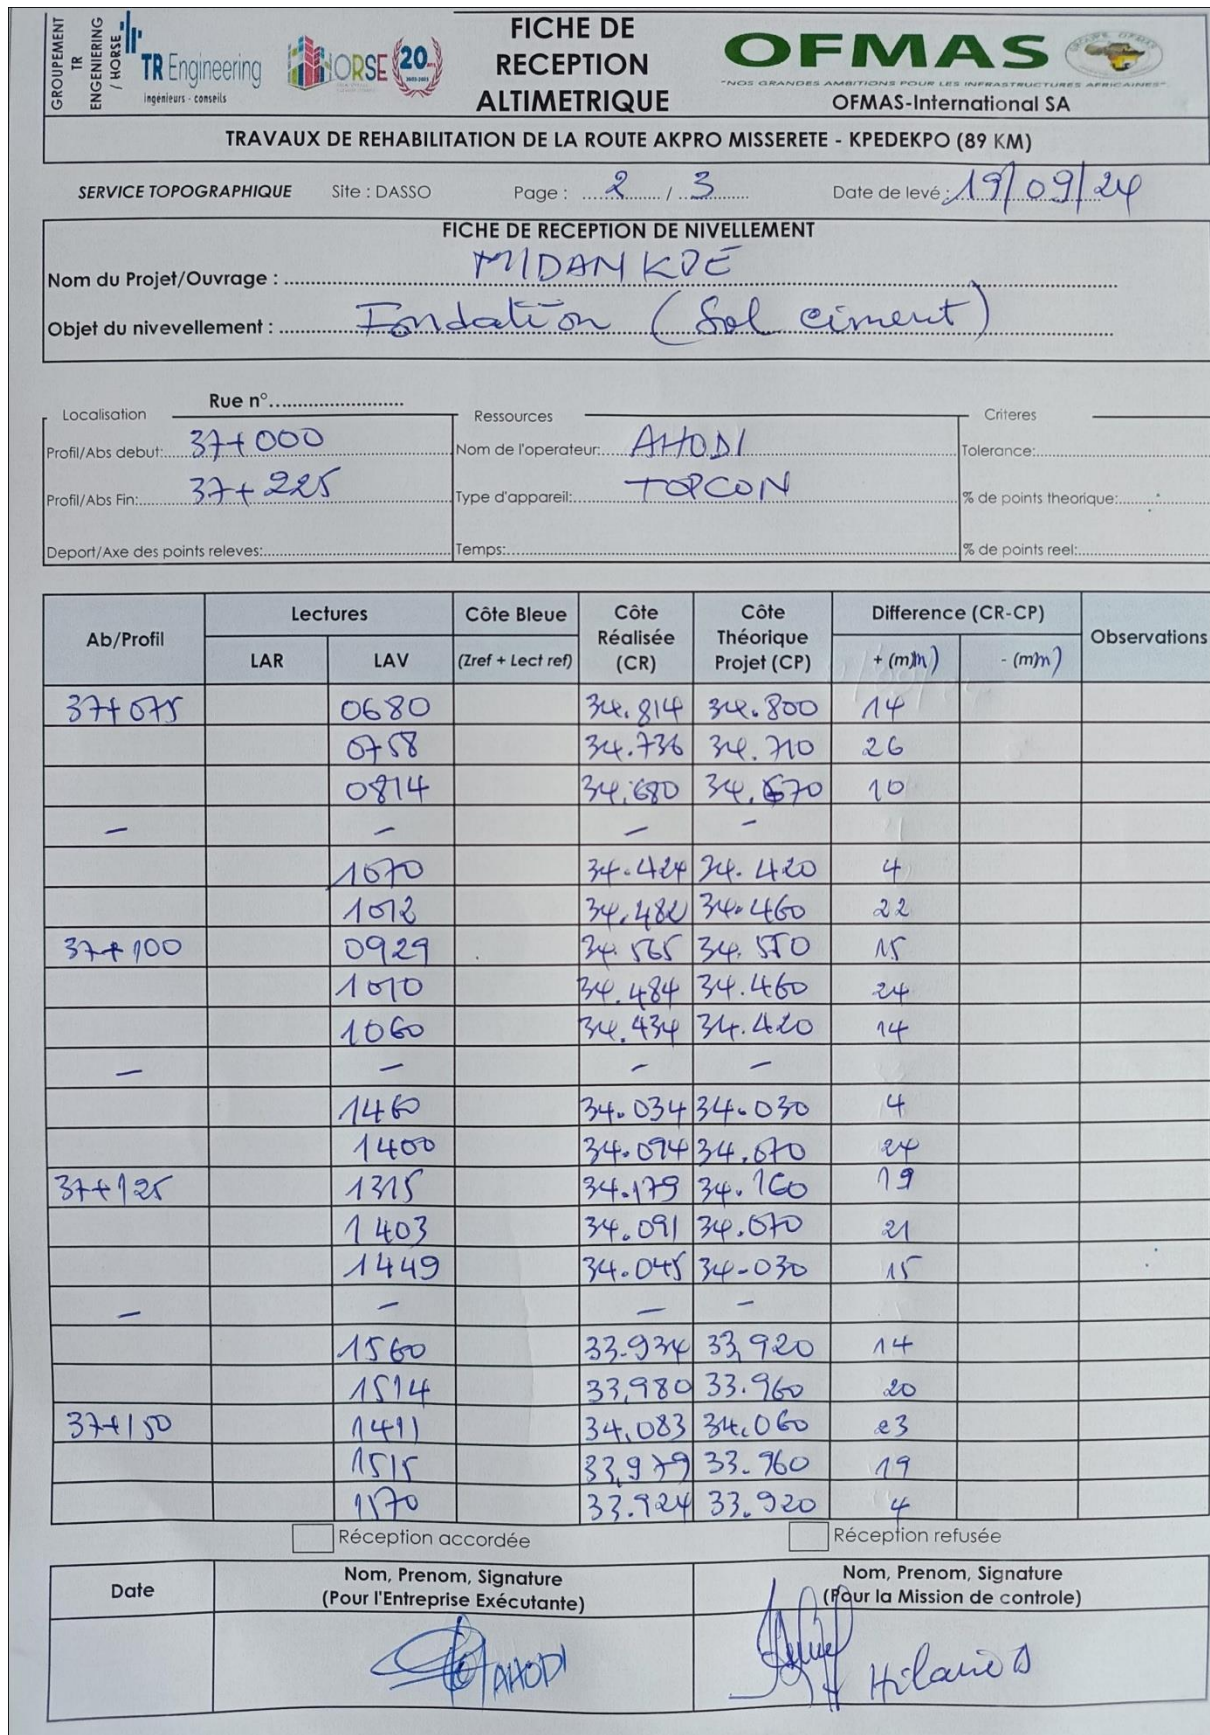 GROUPEMENT
TR
ENGENIERING
/ HORSE
TR Engineering
Ingénieurs - conseils
HORSE 20 ans
FICHE DE
RECEPTION
ALTIMETRIQUE
OFMAS
"NOS GRANDES AMBITIONS POUR LES INFRASTRUCTURES AFRICAINES"
OFMAS-International SA
TRAVAUX DE REHABILITATION DE LA ROUTE AKPRO MISSERETE - KPEDEKPO (89 KM)
SERVICE TOPOGRAPHIQUE Site : DASSO Page : 2 / 3 Date de levé : 19/09/24
FICHE DE RECEPTION DE NIVELLEMENT
Nom du Projet/Ouvrage : MIDANKOE
Objet du nivevellement : Fondation (Sol ciment)
Rue n°
Localisation Ressources Criteres
Profil/Abs debut: 37+000 Nom de l'operateur: AHODI Tolerance:
Profil/Abs Fin: 37+225 Type d'appareil: TOPCON % de points theorique:
Deport/Axe des points releves: Temps: % de points reel:
Ab/Profil Lectures Côte Bleue Côte Réalisée (CR) Côte Théorique Projet (CP) Difference (CR-CP) Observations
LAR LAV (Zref + Lect ref) + (mm) - (mm)
37+075 0680 34.814 34.800 14
0758 34.736 34.710 26
0814 34.680 34.670 10
— — — —
1070 34.424 34.420 4
1012 34.482 34.460 22
37+100 0929 34.565 34.550 15
1010 34.484 34.460 24
1060 34.434 34.420 14
— — — —
1460 34.034 34.030 4
1400 34.094 34.070 24
37+125 1315 34.179 34.160 19
1403 34.091 34.070 21
1449 34.045 34-030 15
— — — —
1560 33.934 33,920 14
1514 33,980 33.960 20
37+150 1411 34,083 34.060 23
1515 33,979 33.960 19
1570 33.924 33.920 4
Réception accordée Réception refusée
Date Nom, Prenom, Signature Nom, Prenom, Signature
(Pour l'Entreprise Exécutante) (Pour la Mission de controle)
AHODI Hilaire D